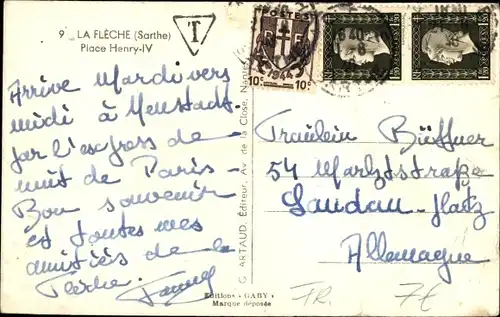 9 LA FLÈCHE (Sarthe)
Place Henry-IV
T
POSTES
RF
10c 1944 10c
Arrive Mardi vers
midi à Neustadt
par l'express de
nuit de Paris -
Bon souvenir
et toutes mes
amitiés de la
Flèche.
G. ARTAUD, Éditeur, Av. de la Close, Nantes
Fräulein
54 Marktstraße
Landau-Pfalz
Allemagne
Editions « GABY »
Marque déposée
FR.
7€